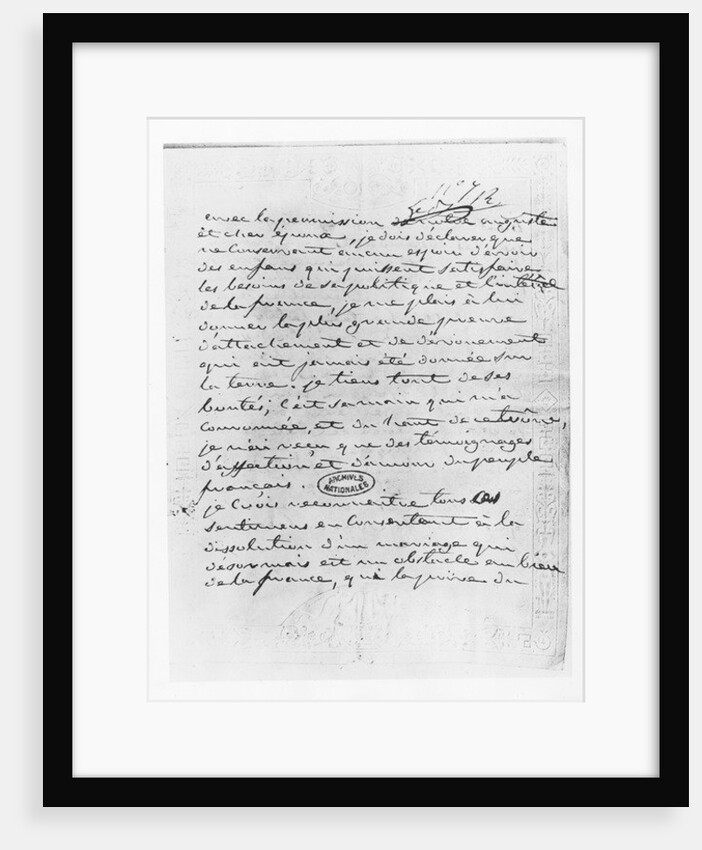 avec la permission de notre auguste
et cher époux, je dois déclarer que
ne conservant aucun espoir d'avoir
des enfans qui puissent satisfaire
les besoins de sa politique et l'intérêt
de la france, je me plais à lui
donner la plus grande preuve
d'attachement et de dévouement
qui ait jamais été donnée sur
la terre. je tiens tout de ses
bontés, c'est sa main qui m'a
couronnée, et du haut de ce trône,
je n'ai reçu que des témoignages
d'affection et d'amour du peuple
français.
ARCHIVES
NATIONALES
je crois reconnaitre tous ces
sentimens en consentant à la
dissolution d'un mariage qui
désormais est un obstacle au bien
de la france, qui la prive du